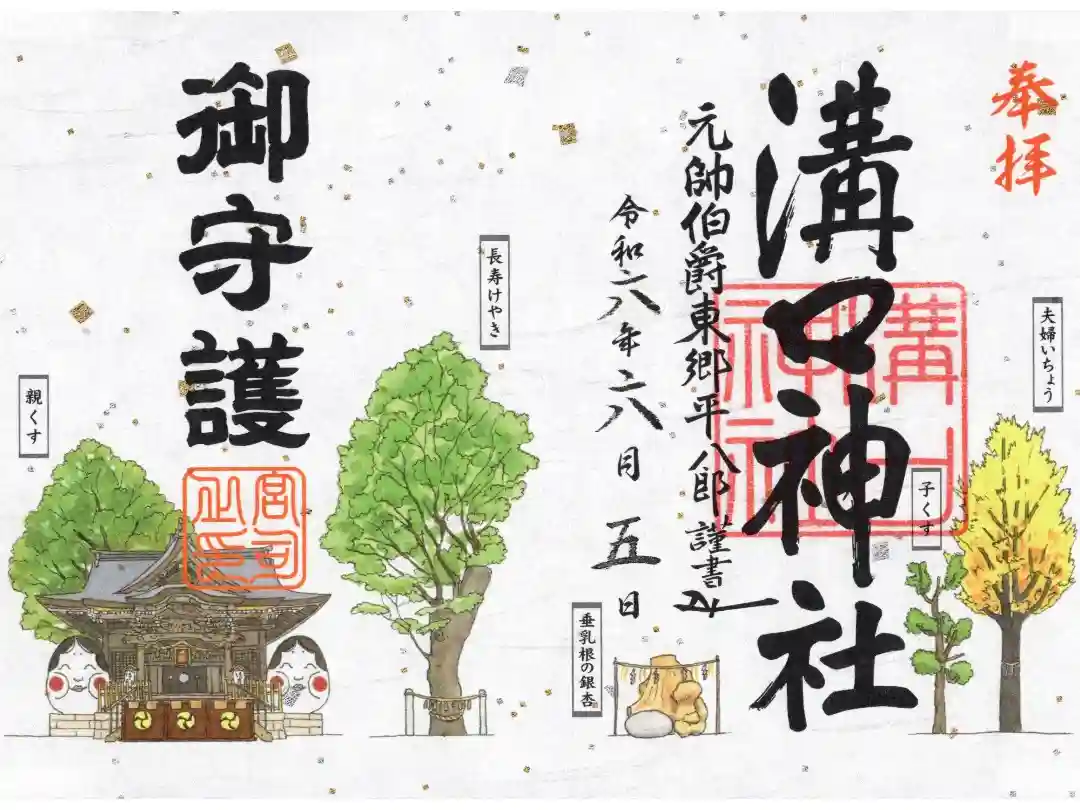 奉拝
夫婦いちょう
溝口神社
溝口神社
子くす
元帥伯爵東郷平八郎謹書
令和六年六月五日
垂乳根の銀杏
長寿けやき
御守護
宮司之印
親くす